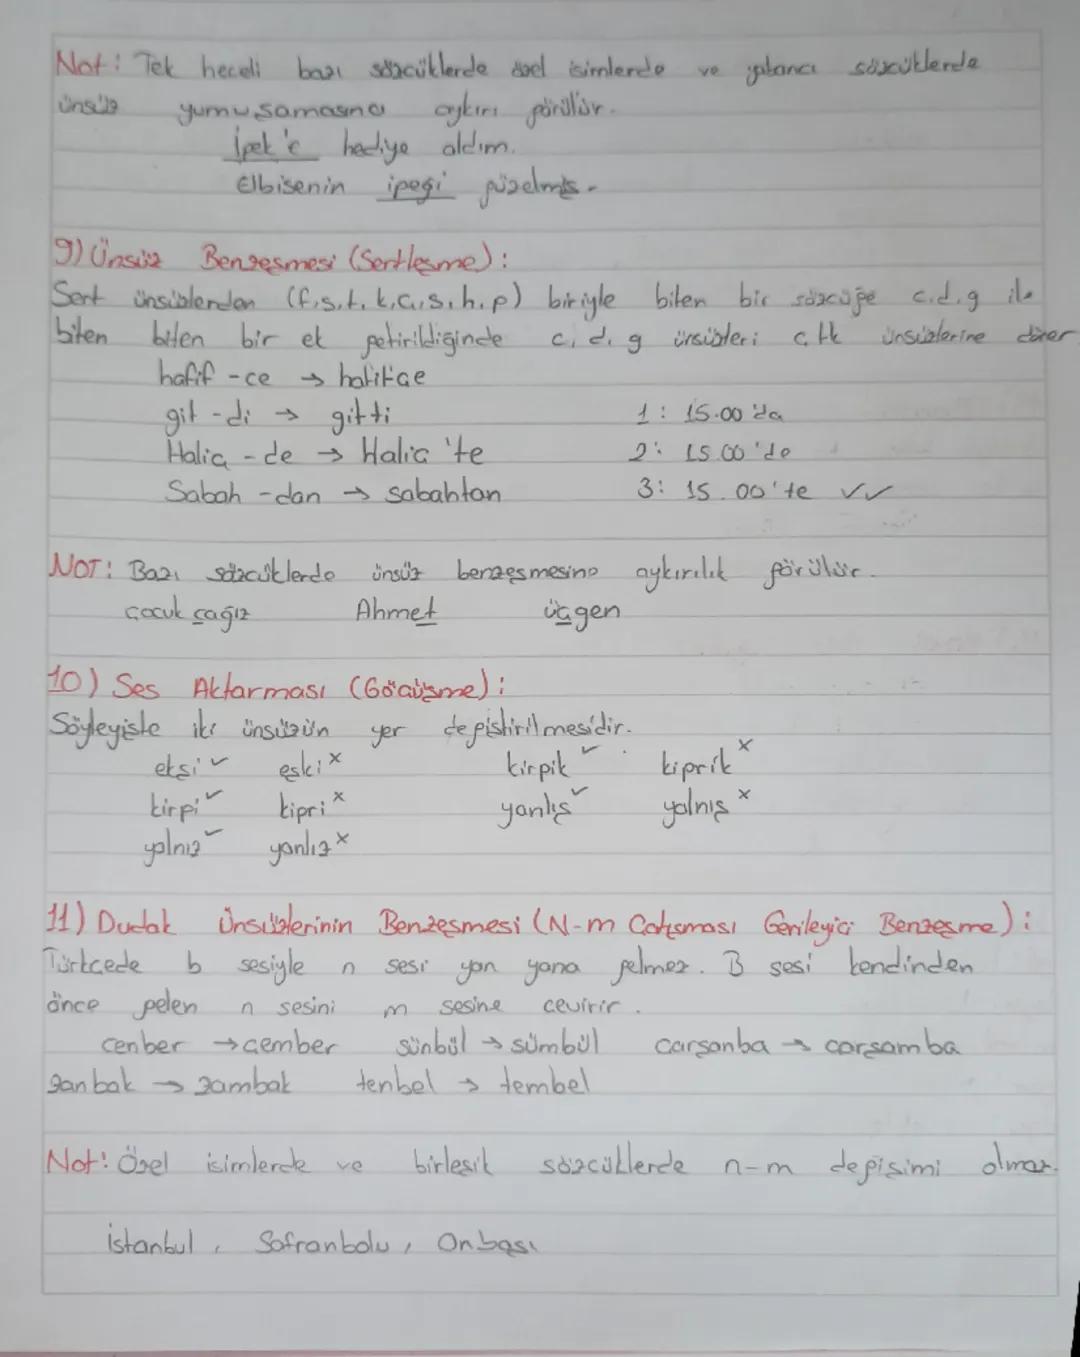 Not: Tek heceli bazı sözcüklerde özel isimlerde ve yabancı sözcüklerde
ünsüz yumuşamasına aykırı görülür.
İpek'e hediye aldım.
Elbisenin ipeği güzelmiş.
9) Ünsüz Benzeşmesi (Sertleşme):
Sert ünsüzlerden (f,s,t,k,ç,ş,h,p) biriyle biten bir sözcüğe c,d,g ile
biten biten bir ek getirildiğinde c, d, g ünsüzleri ç,t,k ünsüzlerine döner
hafif -ce → hafifçe
git -di → gitti 1: 15.00'da
Haliç -de → Haliç'te 2: 15.00'de
Sabah -dan → sabahtan 3: 15.00'te ✓✓
NOT: Bazı sözcüklerde ünsüz benzeşmesine aykırılık görülür.
çocuk çağız Ahmet üçgen
10) Ses Aktarması (Göçüşme):
Söyleyişte iki ünsüzün yer değiştirilmesidir.
ekşi ✓ eşki × kirpik ✓ kiprik ×
kirpi ✓ kipri × yanlış ✓ yalnış ×
yalnız ✓ yanlız ×
11) Dudak Ünsüzlerinin Benzeşmesi (N-m Çatışması Gerileyici Benzeşme):
Türkçede b sesiyle n sesi yan yana gelmez. B sesi kendinden
önce gelen n sesini m sesine çevirir.
çenber → çember sünbül → sümbül çarşanba → çarşamba
zanbak → zambak tenbel → tembel
Not: Özel isimlerde ve birleşik sözcüklerde n-m değişimi olmaz.
İstanbul, Safranbolu, Onbaşı